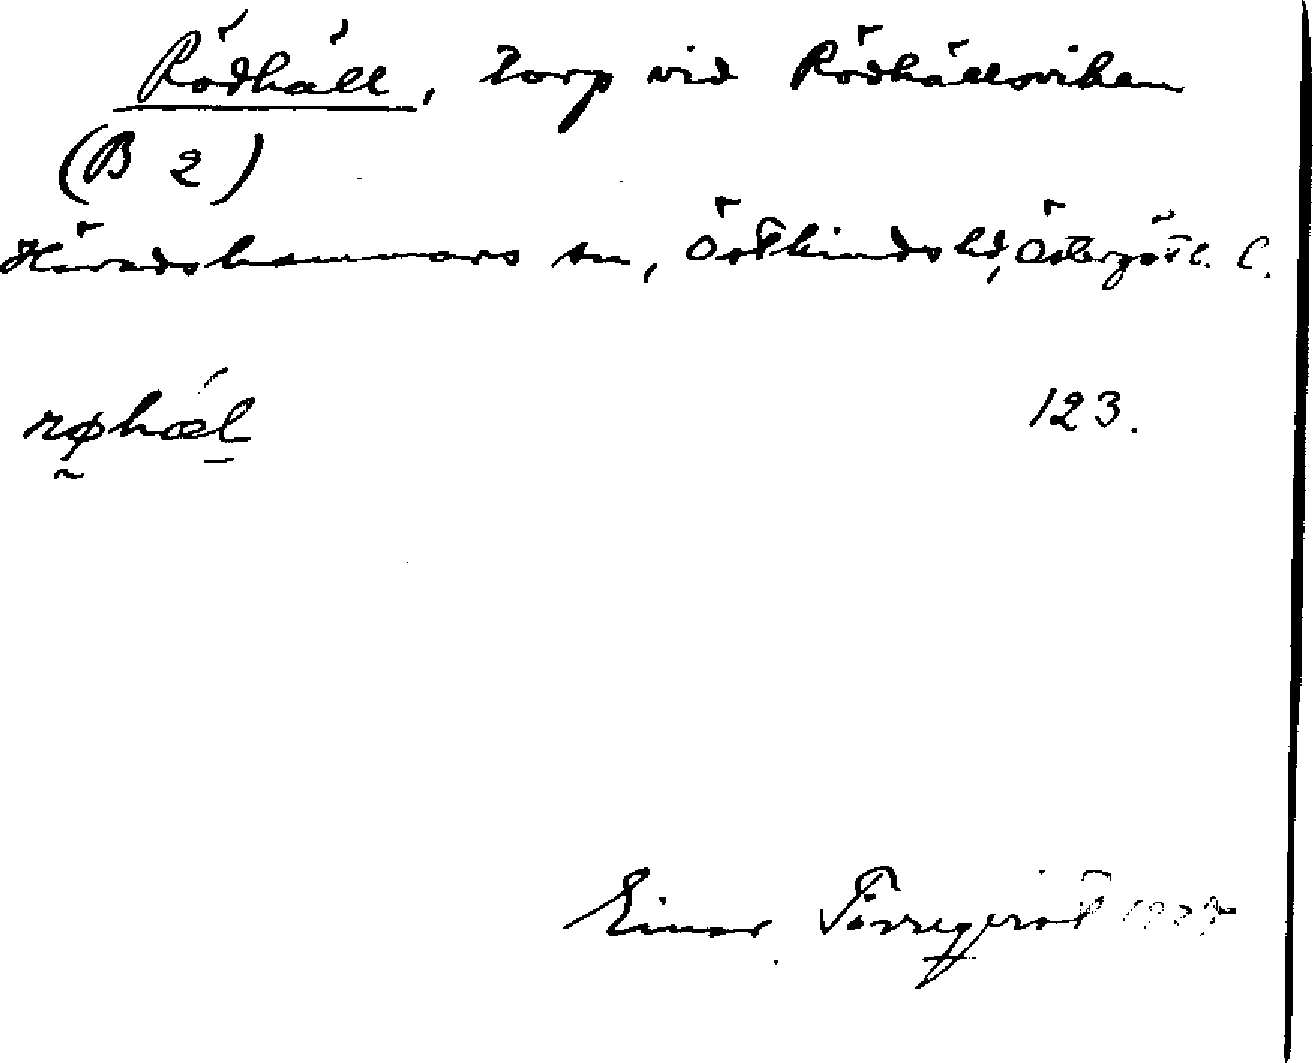 Rödhäll, torp vid Rödhällsviken
(B 2)
Häradshammars sn, Östkinds hd, Östergötl. l.
røhæl 123.
Einar Törreqvist